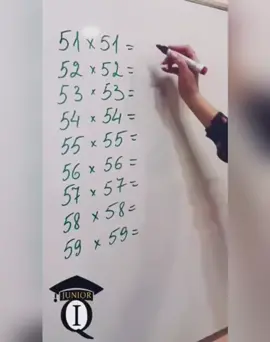 51 × 51 =
52 × 52 =
53 × 53 =
54 × 54 =
55 × 55 =
56 × 56 =
57 × 57 =
58 × 58 =
59 × 59 =
JUNIOR
IQ